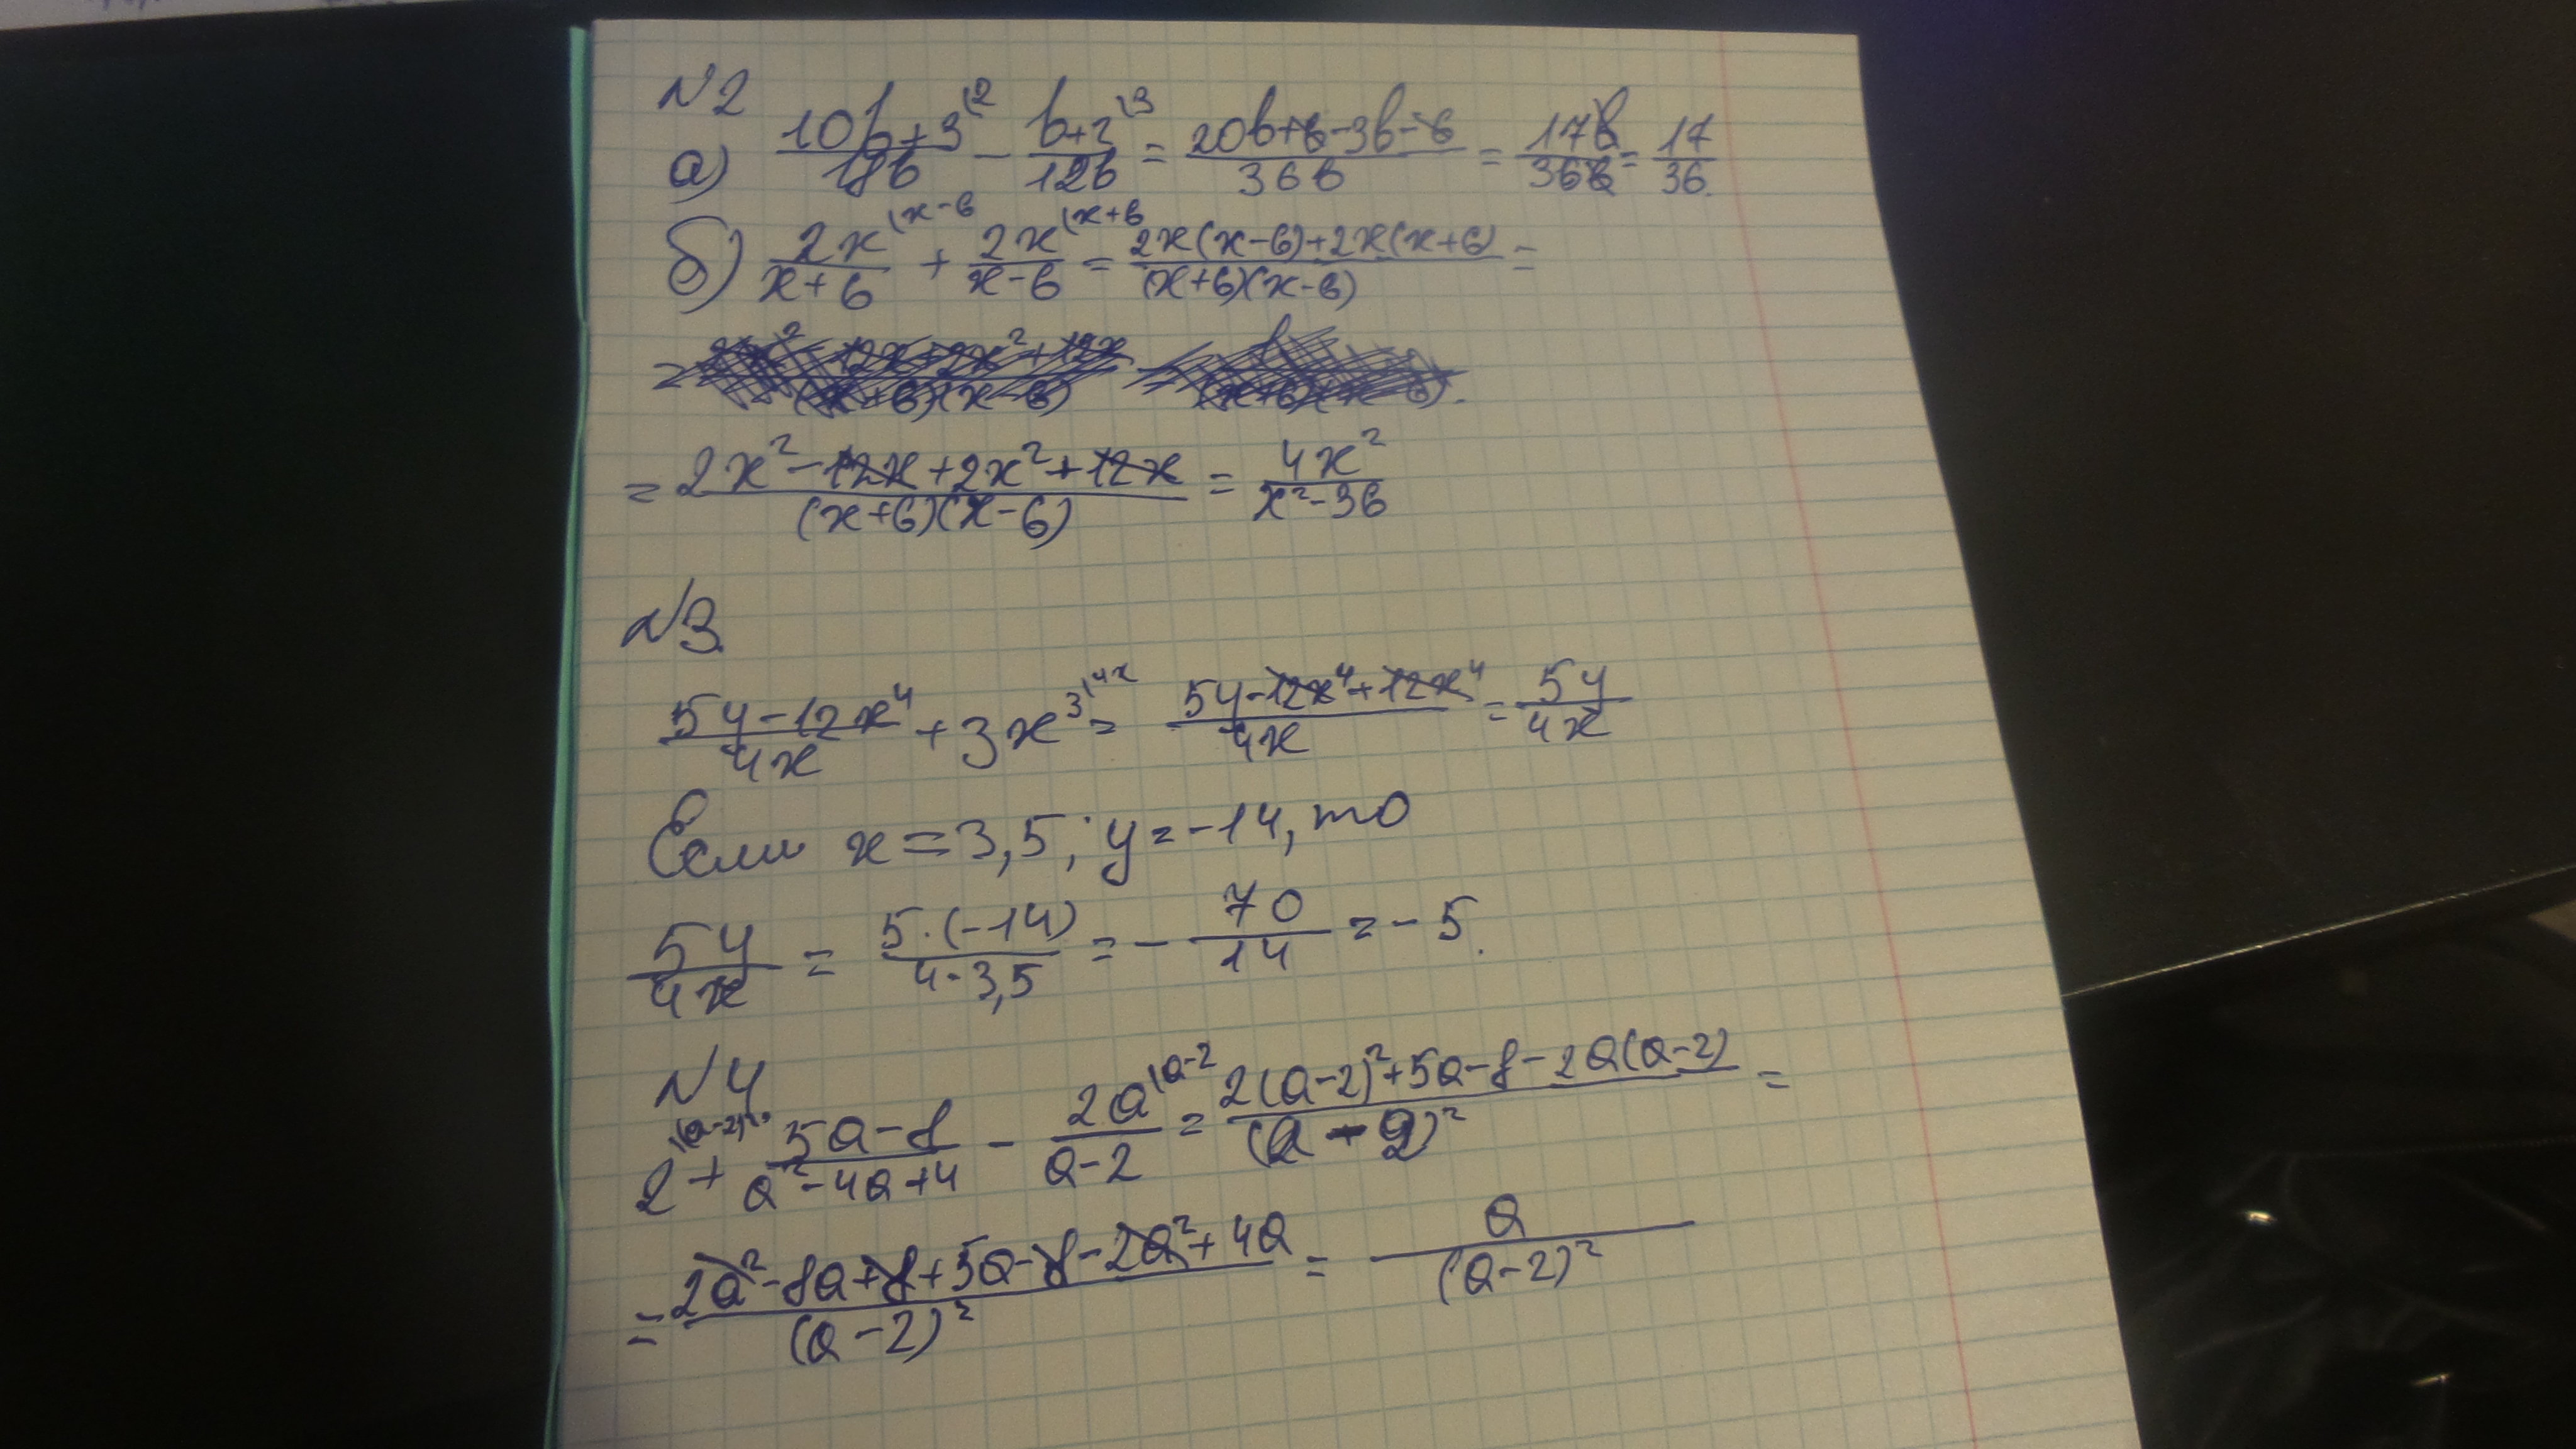 №2
а) (10b+3)/18b ⁽² − (b+2)/12b ⁽³ = (20b+6−3b−6)/36b = 17b/36b = 17/36.
б) 2x/(x+6) ⁽ˣ⁻⁶ + 2x/(x−6) ⁽ˣ⁺⁶ = (2x(x−6)+2x(x+6))/((x+6)(x−6)) =
= (2x²−12x+2x²+12x)/((x+6)(x−6)) = 4x²/(x²−36)
№3.
(5y−12x⁴)/4x + 3x³ ⁽⁴ˣ = (5y−12x⁴+12x⁴)/4x = 5y/4x
Если x=3,5; y=−14, то
5y/4x = 5·(−14)/4·3,5 = −70/14 = −5.
№4
2 ⁽(a−2)² + (5a−8)/(a²−4a+4) − 2a/(a−2) ⁽ᵃ⁻² = (2(a−2)²+5a−8−2a(a−2))/(a−2)² =
= (2a²−8a+8+5a−8−2a²+4a)/(a−2)² = a/(a−2)²